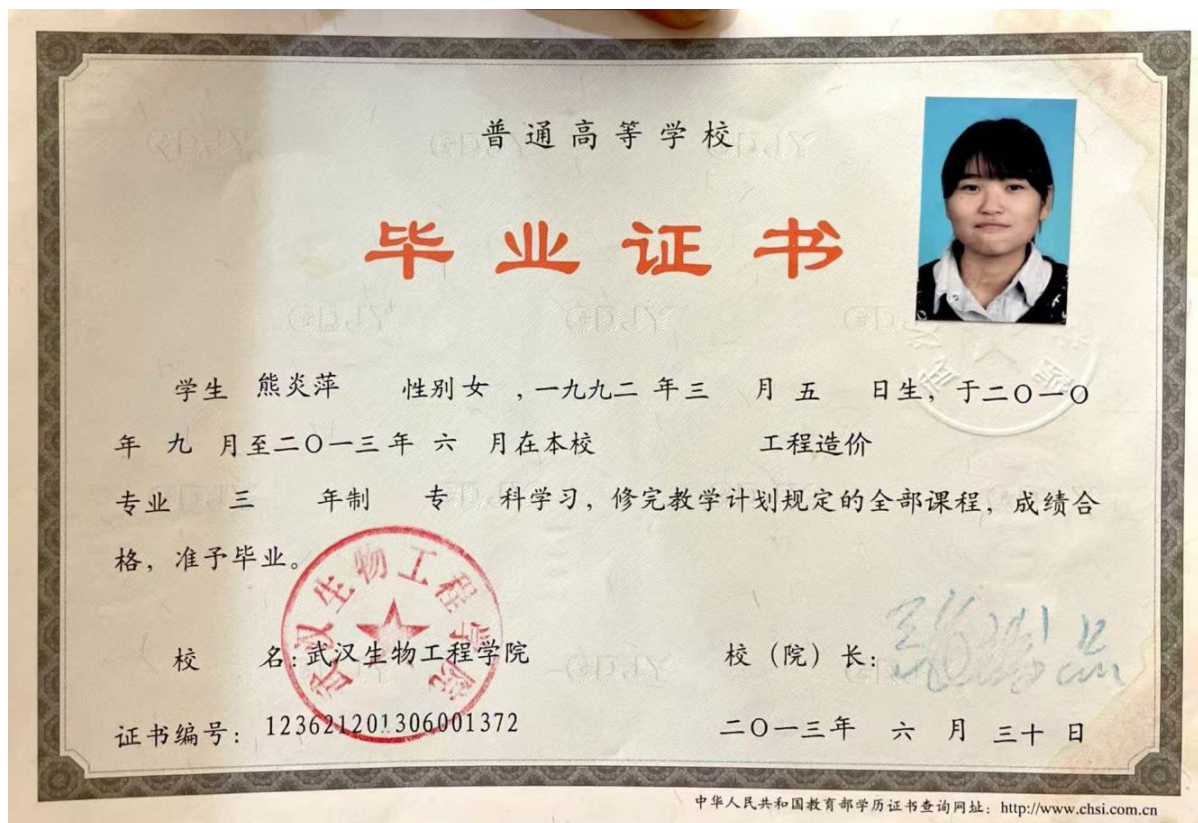 普通高等学校
毕业证书
学生 熊炎萍 性别 女 ,一九九二 年 三 月 五 日生,于二〇一〇
年 九 月至二〇一三年 六 月在本校 工程造价
专业 三 年制 专 科学习,修完教学计划规定的全部课程,成绩合
格,准予毕业。
武汉生物工程学院
校 名:武汉生物工程学院 校(院)长:
证书编号: 123621201306001372 二〇一三年 六 月 三十 日
中华人民共和国教育部学历证书查询网址:http://www.chsi.com.cn